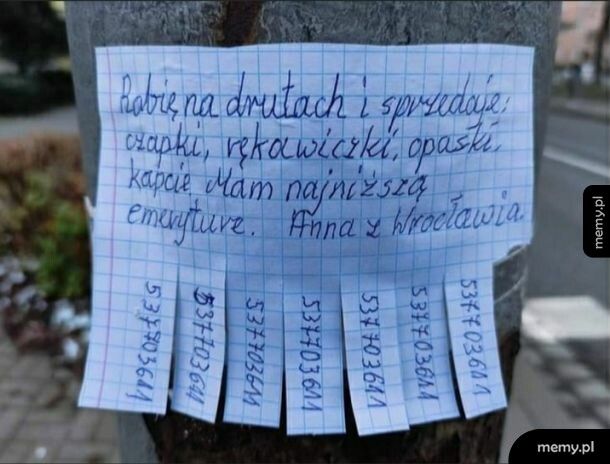 Robię na drutach i sprzedaję:
czapki, rękawiczki, opaski,
kapcie Mam najniższą
emeryturę. Anna z Wrocławia.
537703611
537703611
537703611
537703611
537703611
537703611
537703611
memy.pl
memy.pl